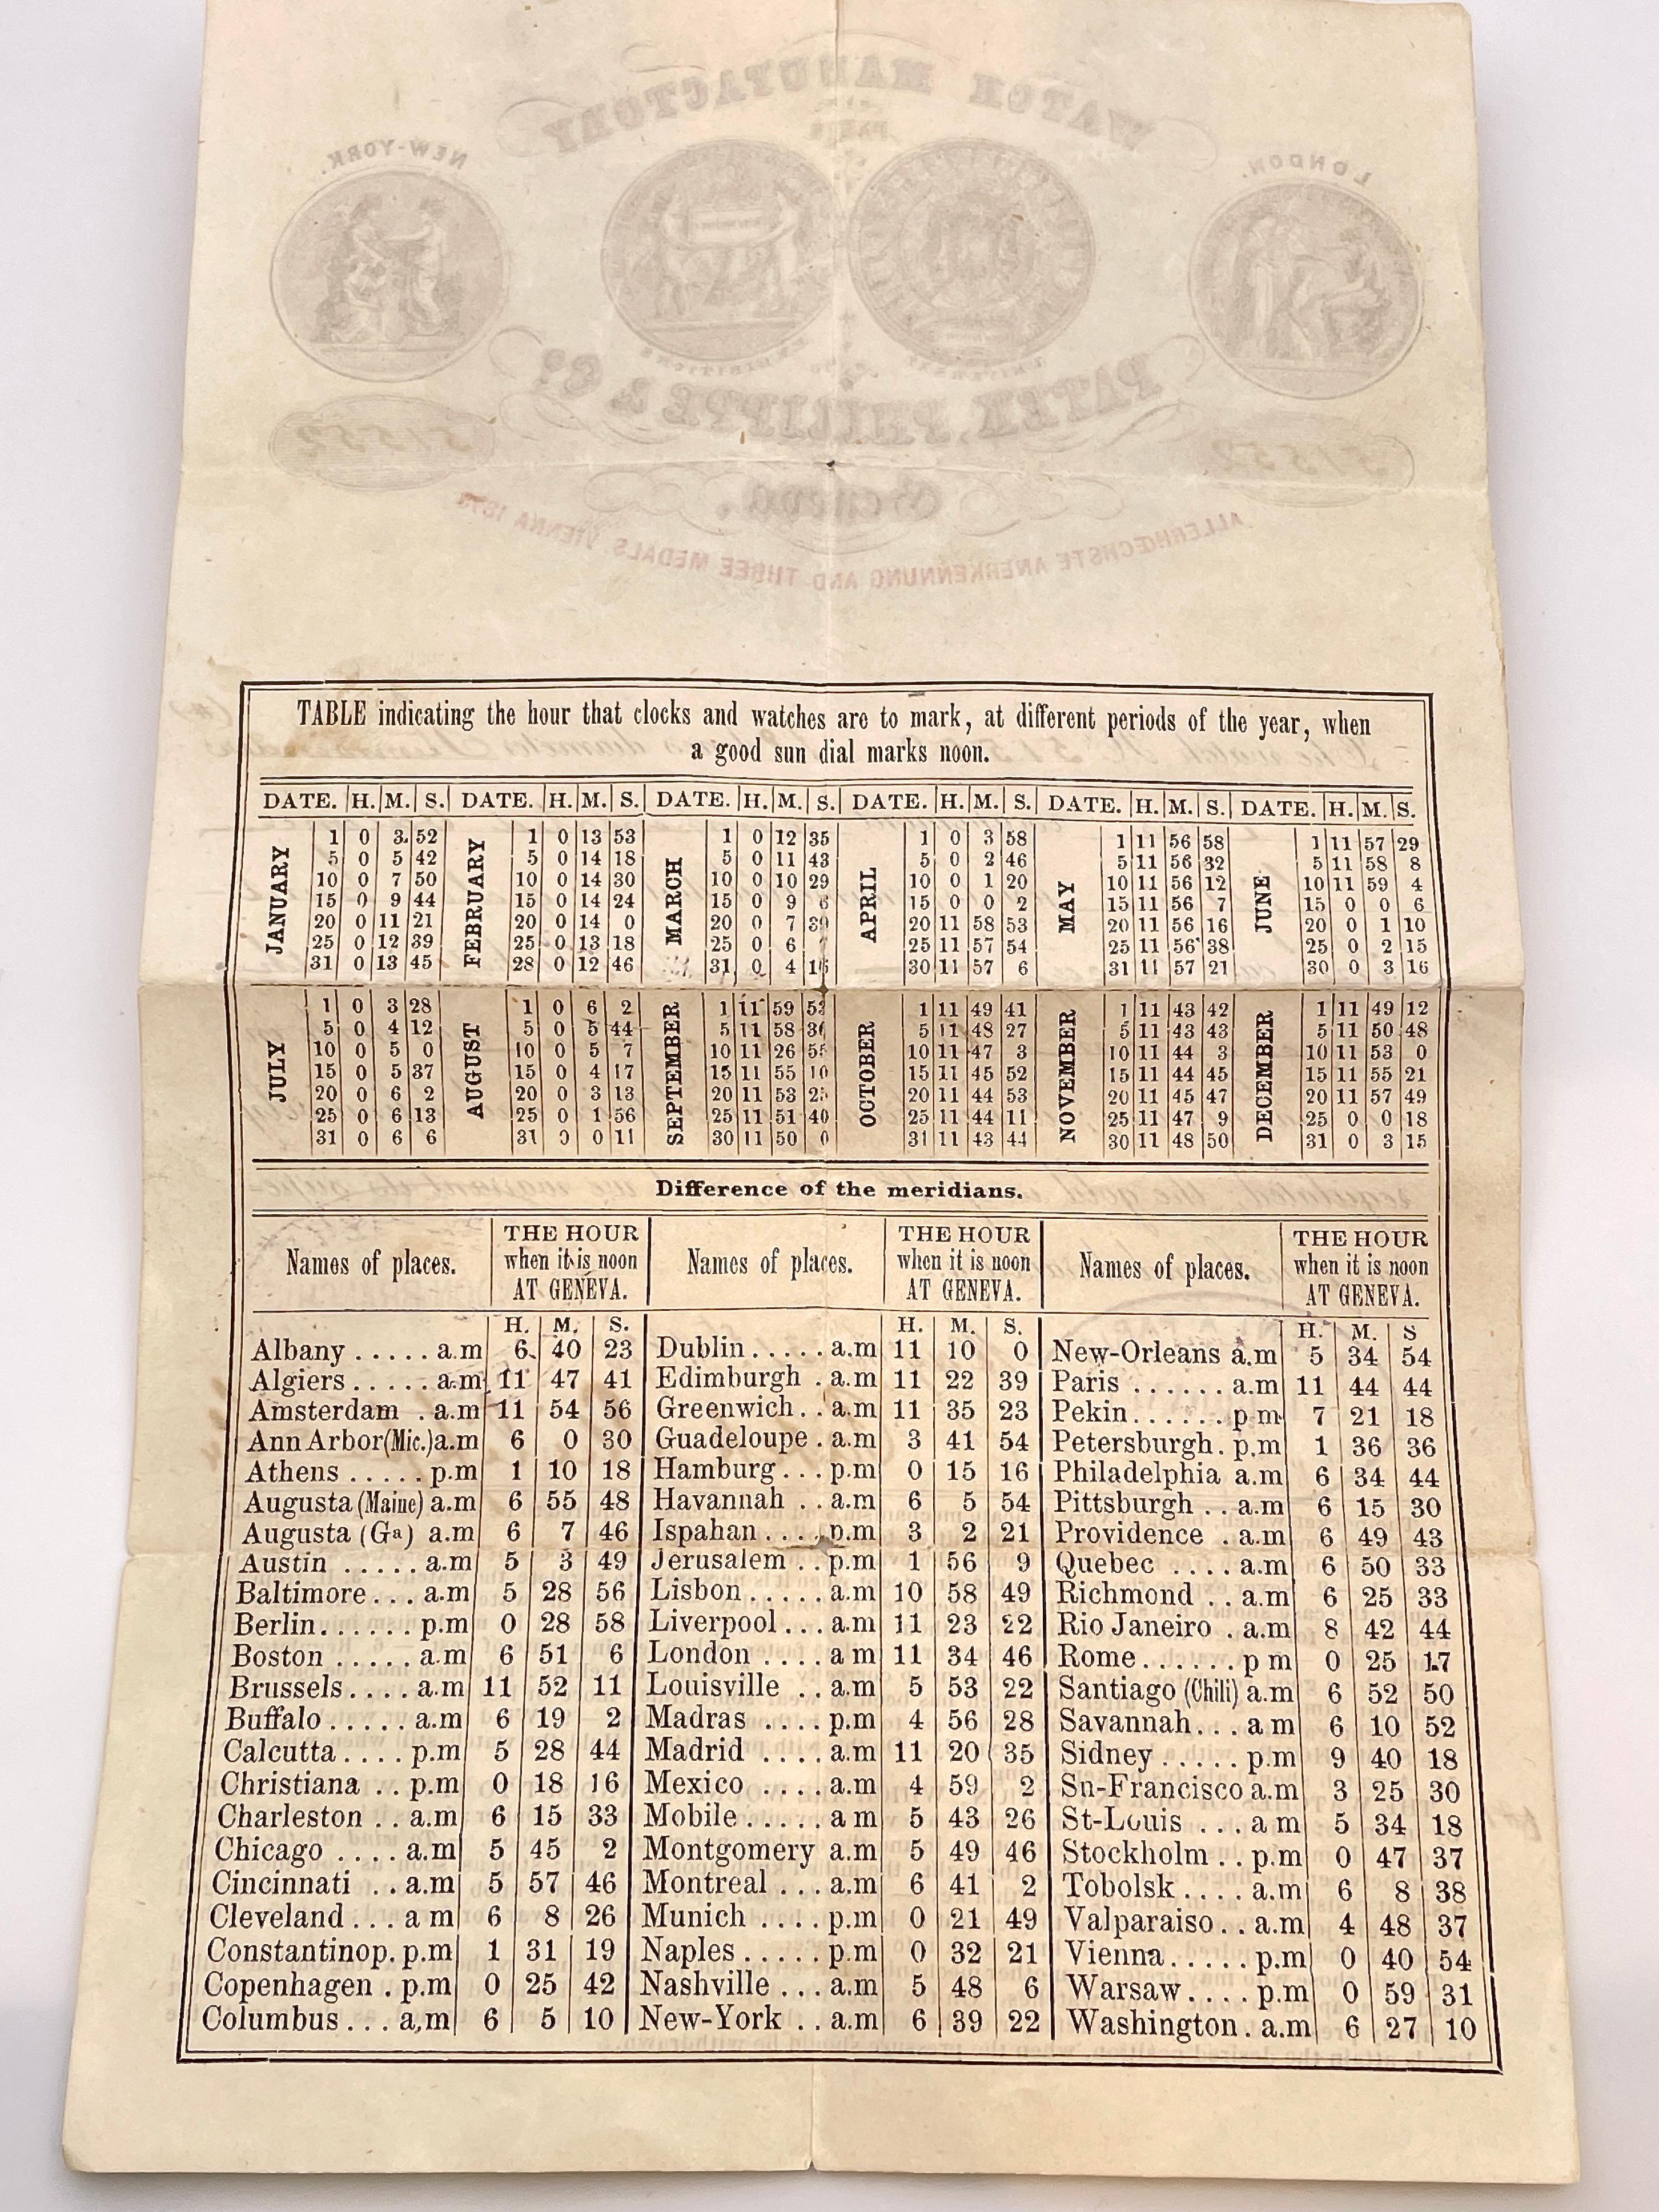 WATCH MANUFACTORY
LONDON.
NEW-YORK.
PATEK, PHILIPPE & Co.
51552
51552
Geneva.
ALLERHŒCHSTE ANERKENNUNG AND THREE MEDALS VIENNA
TABLE indicating the hour that clocks and watches are to mark, at different periods of the year, when
a good sun dial marks noon.
DATE. H. M. S. DATE. H. M. S. DATE. H. M. S. DATE. H. M. S. DATE. H. M. S. DATE. H. M. S.
JANUARY FEBRUARY MARCH APRIL MAY JUNE
1 0 3 52 1 0 13 53 1 0 12 35 1 0 3 58 1 11 56 58 1 11 57 29
5 0 5 42 5 0 14 18 5 0 11 43 5 0 2 46 5 11 56 32 5 11 58 8
10 0 7 50 10 0 14 30 10 0 10 29 10 0 1 20 10 11 56 12 10 11 59 4
15 0 9 44 15 0 14 24 15 0 9 6 15 0 0 2 15 11 56 7 15 0 0 6
20 0 11 21 20 0 14 0 20 0 7 39 20 11 58 53 20 11 56 16 20 0 1 10
25 0 12 39 25 0 13 18 25 0 6 7 25 11 57 54 25 11 56 38 25 0 2 15
31 0 13 45 28 0 12 46 31 0 4 16 30 11 57 6 31 11 57 21 30 0 3 16
JULY AUGUST SEPTEMBER OCTOBER NOVEMBER DECEMBER
1 0 3 28 1 0 6 2 1 11 59 1 11 49 41 1 11 43 42 1 11 49 12
5 0 4 12 5 0 5 44 5 11 58 5 11 48 27 5 11 43 43 5 11 50 48
10 0 5 0 10 0 5 7 10 11 26 10 11 47 3 10 11 44 3 10 11 53 0
15 0 5 37 15 0 4 17 15 11 55 10 15 11 45 52 15 11 44 45 15 11 55 21
20 0 6 2 20 0 3 13 20 11 53 25 20 11 44 53 20 11 45 47 20 11 57 49
25 0 6 13 25 0 1 56 25 11 51 40 25 11 44 11 25 11 47 9 25 0 0 18
31 0 6 6 31 0 0 11 30 11 50 0 31 11 43 44 30 11 48 50 31 0 3 15
Difference of the meridians.
Names of places. THE HOUR when it is noon AT GENEVA. Names of places. THE HOUR when it is noon AT GENEVA. Names of places. THE HOUR when it is noon AT GENEVA.
H. M. S. H. M. S. H. M. S
Albany ..... a.m 6 40 23 Dublin ..... a.m 11 10 0 New-Orleans a.m 5 34 54
Algiers ..... a.m 11 47 41 Edimburgh . a.m 11 22 39 Paris ...... a.m 11 44 44
Amsterdam . a.m 11 54 56 Greenwich .. a.m 11 35 23 Pekin ...... p m 7 21 18
Ann Arbor (Mic.) a.m 6 0 30 Guadeloupe . a.m 3 41 54 Petersburgh . p.m 1 36 36
Athens ..... p.m 1 10 18 Hamburg ... p.m 0 15 16 Philadelphia a.m 6 34 44
Augusta (Maine) a.m 6 55 48 Havannah .. a.m 6 5 54 Pittsburgh .. a.m 6 15 30
Augusta (Ga) a.m 6 7 46 Ispahan .... p.m 3 2 21 Providence . a.m 6 49 43
Austin ..... a.m 5 3 49 Jerusalem .. p.m 1 56 9 Quebec .... a.m 6 50 33
Baltimore ... a.m 5 28 56 Lisbon ..... a.m 10 58 49 Richmond .. a.m 6 25 33
Berlin ...... p.m 0 28 58 Liverpool ... a.m 11 23 22 Rio Janeiro . a.m 8 42 44
Boston ..... a.m 6 51 6 London .... a m 11 34 46 Rome ...... p m 0 25 17
Brussels .... a.m 11 52 11 Louisville .. a.m 5 53 22 Santiago (Chili) a.m 6 52 50
Buffalo ..... a.m 6 19 2 Madras .... p.m 4 56 28 Savannah ... a m 6 10 52
Calcutta .... p.m 5 28 44 Madrid .... a.m 11 20 35 Sidney ..... p.m 9 40 18
Christiana .. p.m 0 18 16 Mexico .... a.m 4 59 2 Sn-Francisco a.m 3 25 30
Charleston .. a.m 6 15 33 Mobile ..... a.m 5 43 26 St-Louis ... a m 5 34 18
Chicago .... a.m 5 45 2 Montgomery a.m 5 49 46 Stockholm .. p.m 0 47 37
Cincinnati .. a.m 5 57 46 Montreal ... a.m 6 41 2 Tobolsk .... a.m 6 8 38
Cleveland ... a m 6 8 26 Munich .... p.m 0 21 49 Valparaiso .. a.m 4 48 37
Constantinop. p.m 1 31 19 Naples ..... p.m 0 32 21 Vienna ..... p.m 0 40 54
Copenhagen . p.m 0 25 42 Nashville ... a.m 5 48 6 Warsaw .... p.m 0 59 31
Columbus ... a,m 6 5 10 New-York .. a.m 6 39 22 Washington . a.m 6 27 10